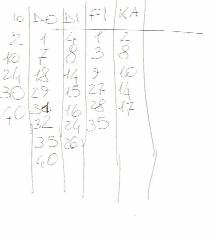 10 DO DI FI KA
2 1 4 1 2
10 7 8 3 8
24 18 14 9 10
30 29 15 27 14
40 31 16 28 17
32 24 35
35 26
40